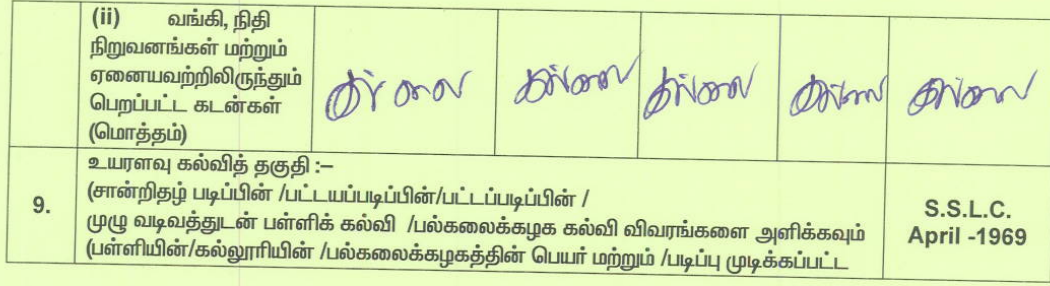 (ii) வங்கி, நிதி
நிறுவனங்கள் மற்றும்
ஏனையவற்றிலிருந்தும்
பெறப்பட்ட கடன்கள்
(மொத்தம்)
இல்லை இல்லை இல்லை இல்லை இல்லை
9.
உயரளவு கல்வித் தகுதி :–
(சான்றிதழ் படிப்பின் /பட்டயப்படிப்பின்/பட்டப்படிப்பின் /
முழு வடிவத்துடன் பள்ளிக் கல்வி /பல்கலைக்கழக கல்வி விவரங்களை அளிக்கவும்
(பள்ளியின்/கல்லூரியின் /பல்கலைக்கழகத்தின் பெயர் மற்றும் /படிப்பு முடிக்கப்பட்ட
S.S.L.C.
April -1969